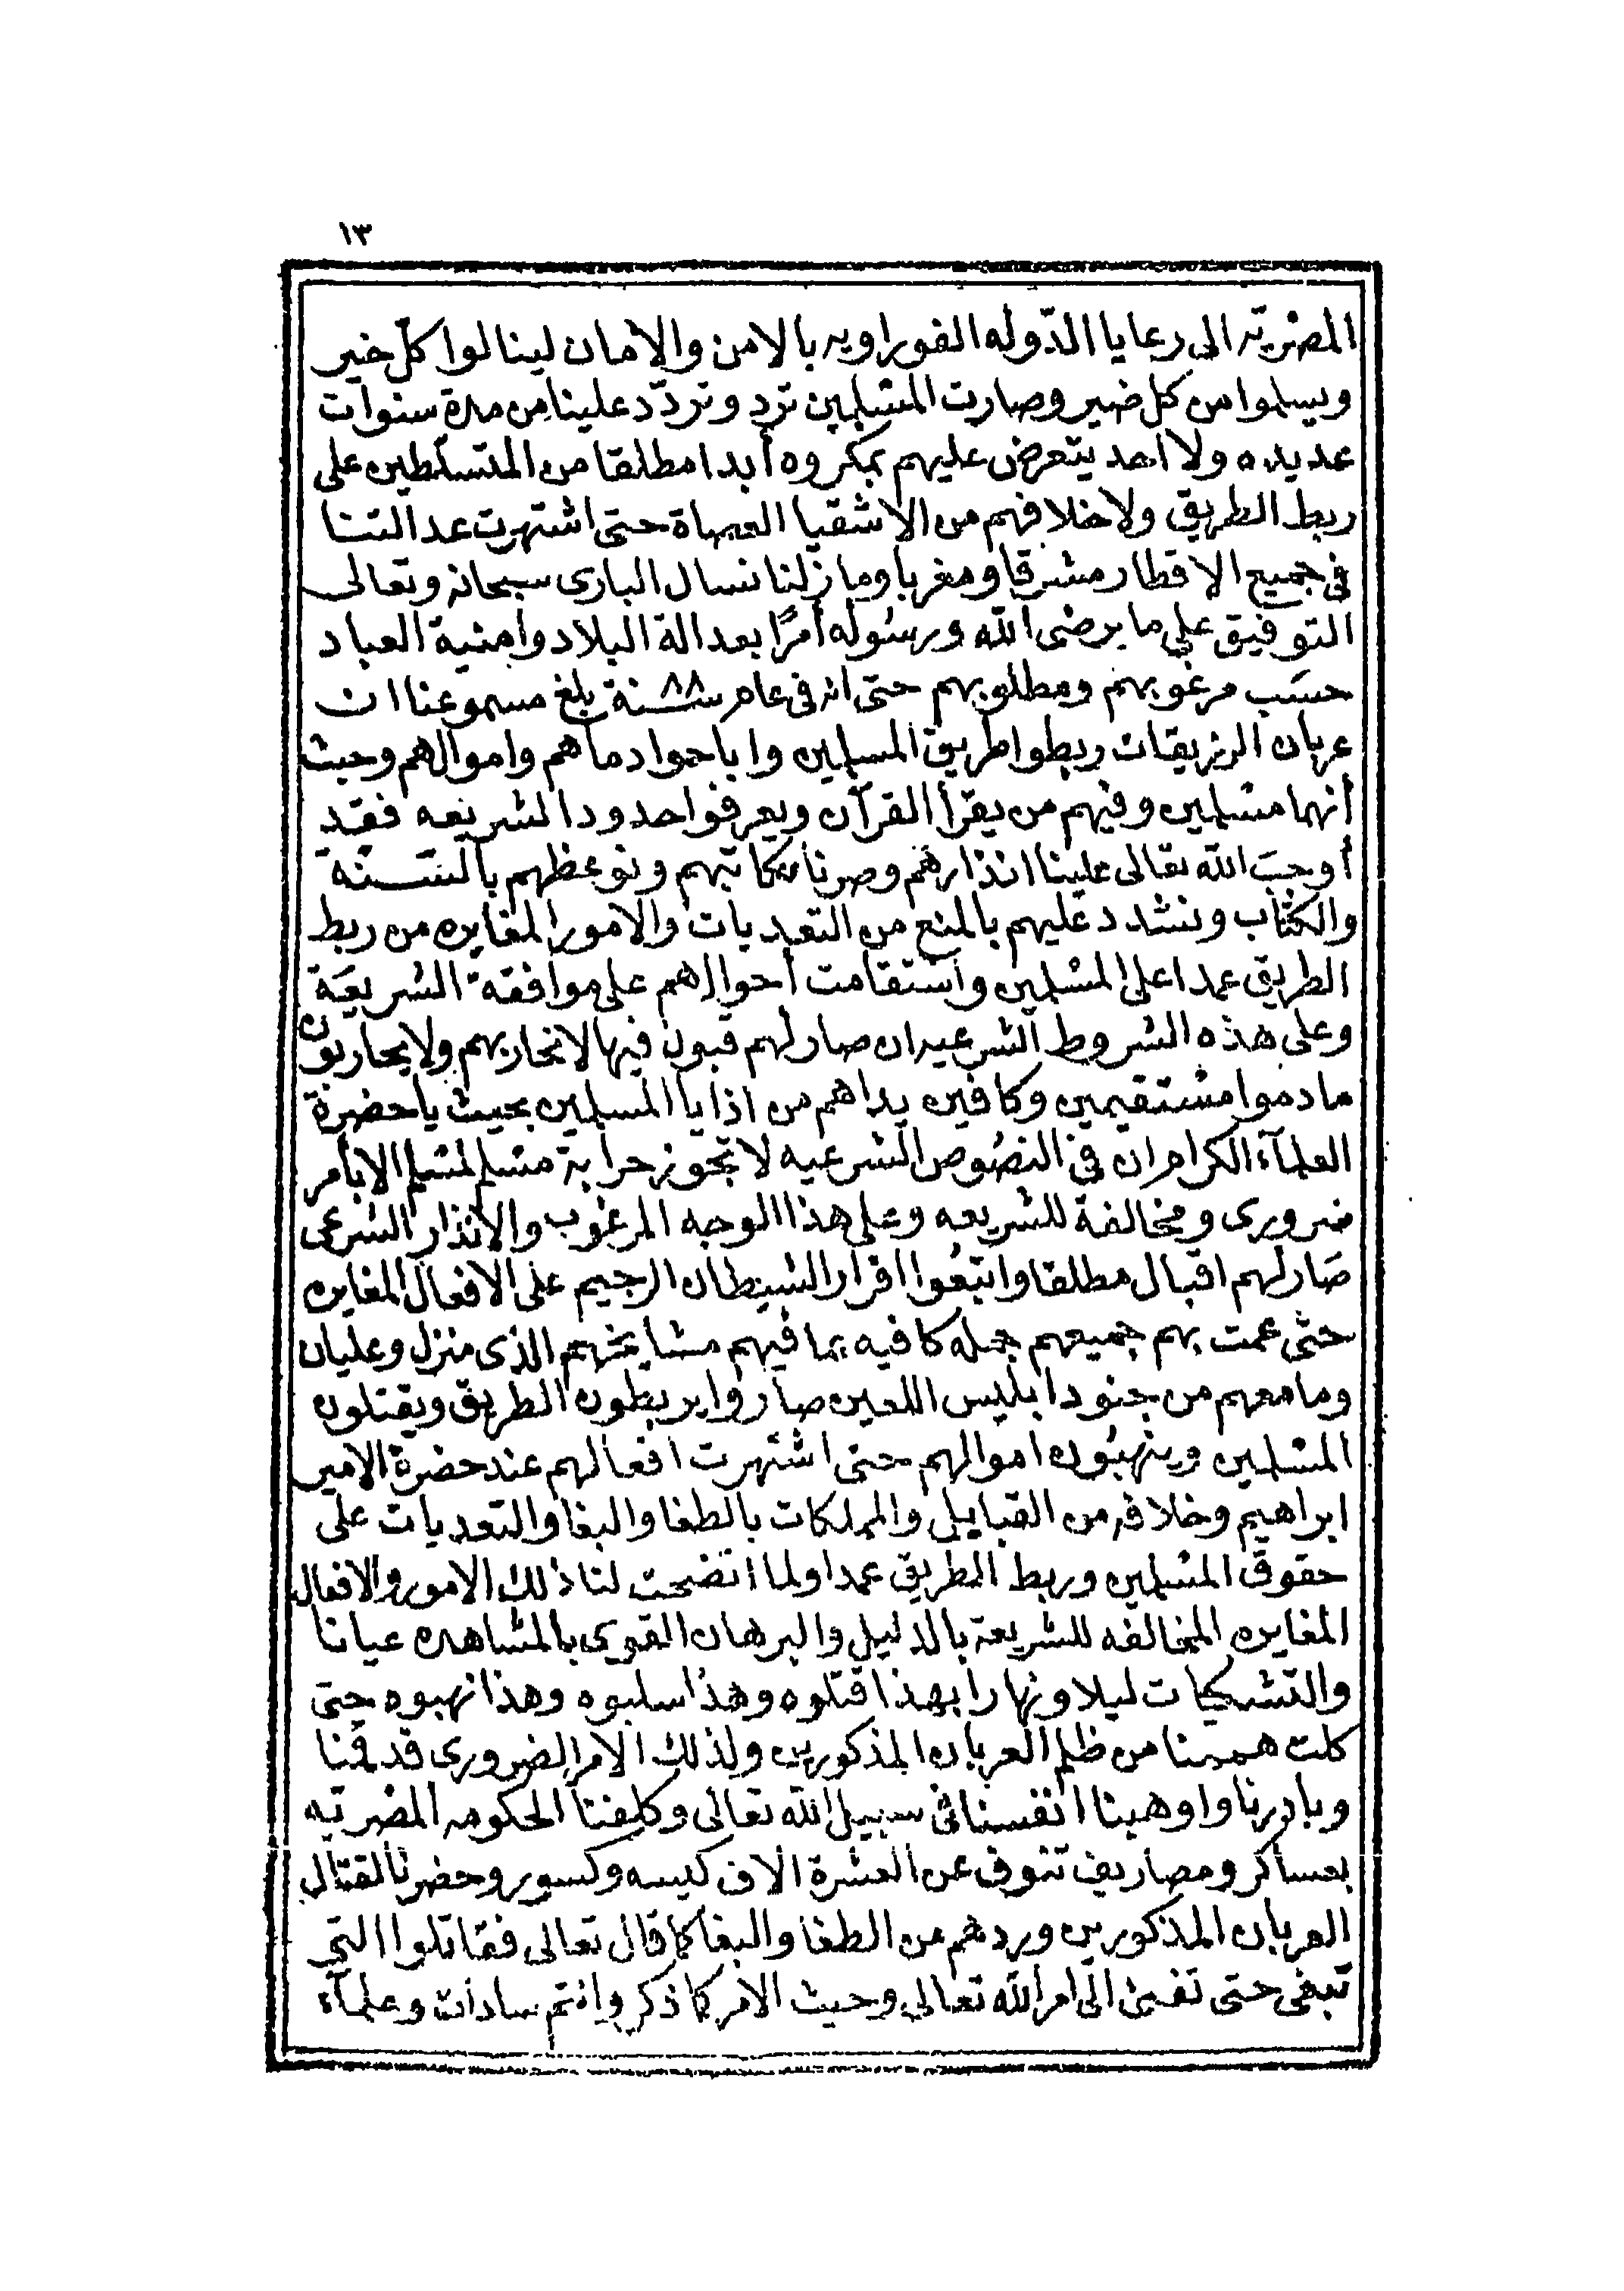 ١٣
المصريّه الى رعايا الدّوله الفوراويه بالامن والامان لينالوا كلّ خير
ويسلموا من كل ضير وصارت المسْلمين ترد وتردّد علينا من مدة سنوات
عديده ولا احد يتعرض عليهم بمكروه أبدا مطلقا من المتسلّطين على
ربط الطريق ولا خلافهم من الاشقيا العصاة حتى اشتهرت عدالتنا
فى جميع الاقطار مشرقا ومغربا وما زلنا نسال البارى سبحانه وتعالى
التوفيق على ما يرضى اللّه ورسُوله أمرًا بعدالة البلاد وامنية العباد
حسَب مرغوبهم ومطلوبهم حتى انه فى عام سنة ٨٨ بلغ مسموعنا ان
عربان الرزيقات ربطوا طريق المسلمين واباحوا دماهم واموالهم وحيث
أنهما مسْلمين وفيهم من يقرأ القرآن ويعرفوا حدود الشريعه فقد
أوجبَ اللّه تعالى علينا انذارهم وصرنا نكاتبهم ونوعظهم بالسّنّه
والكتاب ونشدد عليهم بالمنع من التعديات والامور المغايره من ربط
الطريق عمدا على المسْلمين واستقامت أحوالهم على موافقة الشريعَة
وعلى هذه الشروط الشرعيه ان صار لهم قبول فيها لا نحاربهم ولا يحاربون
ما دموا مسْتقيمين وكافين يداهم من اذايا المسلمين بحيث يا حضرة
العلمآء الكرام ان فى النصُوص الشرعيه لا تجوز حرابة مسْلم لمسْلم الا بأمر
ضرورى ومخالفة للشريعه وعلى هذا الوجه المرغوب والانذار الشرعى
صَار لهم اقبال مطلقا واتبعُوا اقرار الشيطان الرجيم على الافعال المغايره
حتّى عمت بهم جميعهم جمله كافيه بما فيهم مشايخهم الذى منزل وعليان
وما معهم من جنود ابليس اللعين صاروا يربطون الطريق ويقتلون
المسْلمين وينهبُون اموالهم حتى اشتهرت افعالهم عند حضرة الامير
ابراهيم وخلافه من القبايل والمملكات بالطغا والبغا والتعديات على
حقوق المسْلمين وربط الطريق عمدا ولما اتضحت لنا ذلك الامور والافعال
المغايره المخالفه للشريعة بالدليل والبرهان القوى بالمشاهده عيانا
والتشكيات ليلا ونهارا بهذا قتلوه وهذا سلبوه وهذا نهبوه حتى
كلت هممنا من ظلم العربان المذكورين ولذلك الامر الضرورى قد قمنا
وبادرنا واوهبنا انفسنا فى سبيل اللّه تعالى وكلفنا الحكومه المصريّه
بعساكر ومصاريف تنوف عن العشرة الاف كيسه وكسور وحضرنا لقتال
العربان المذكورين وردهم عن الطغا والبغا كما قال تعالى فقاتلوا التى
تبغى حتى تفىئ الى امر اللّه تعالى وحيث الامر كما ذكر وانتم سادات وعلمآء